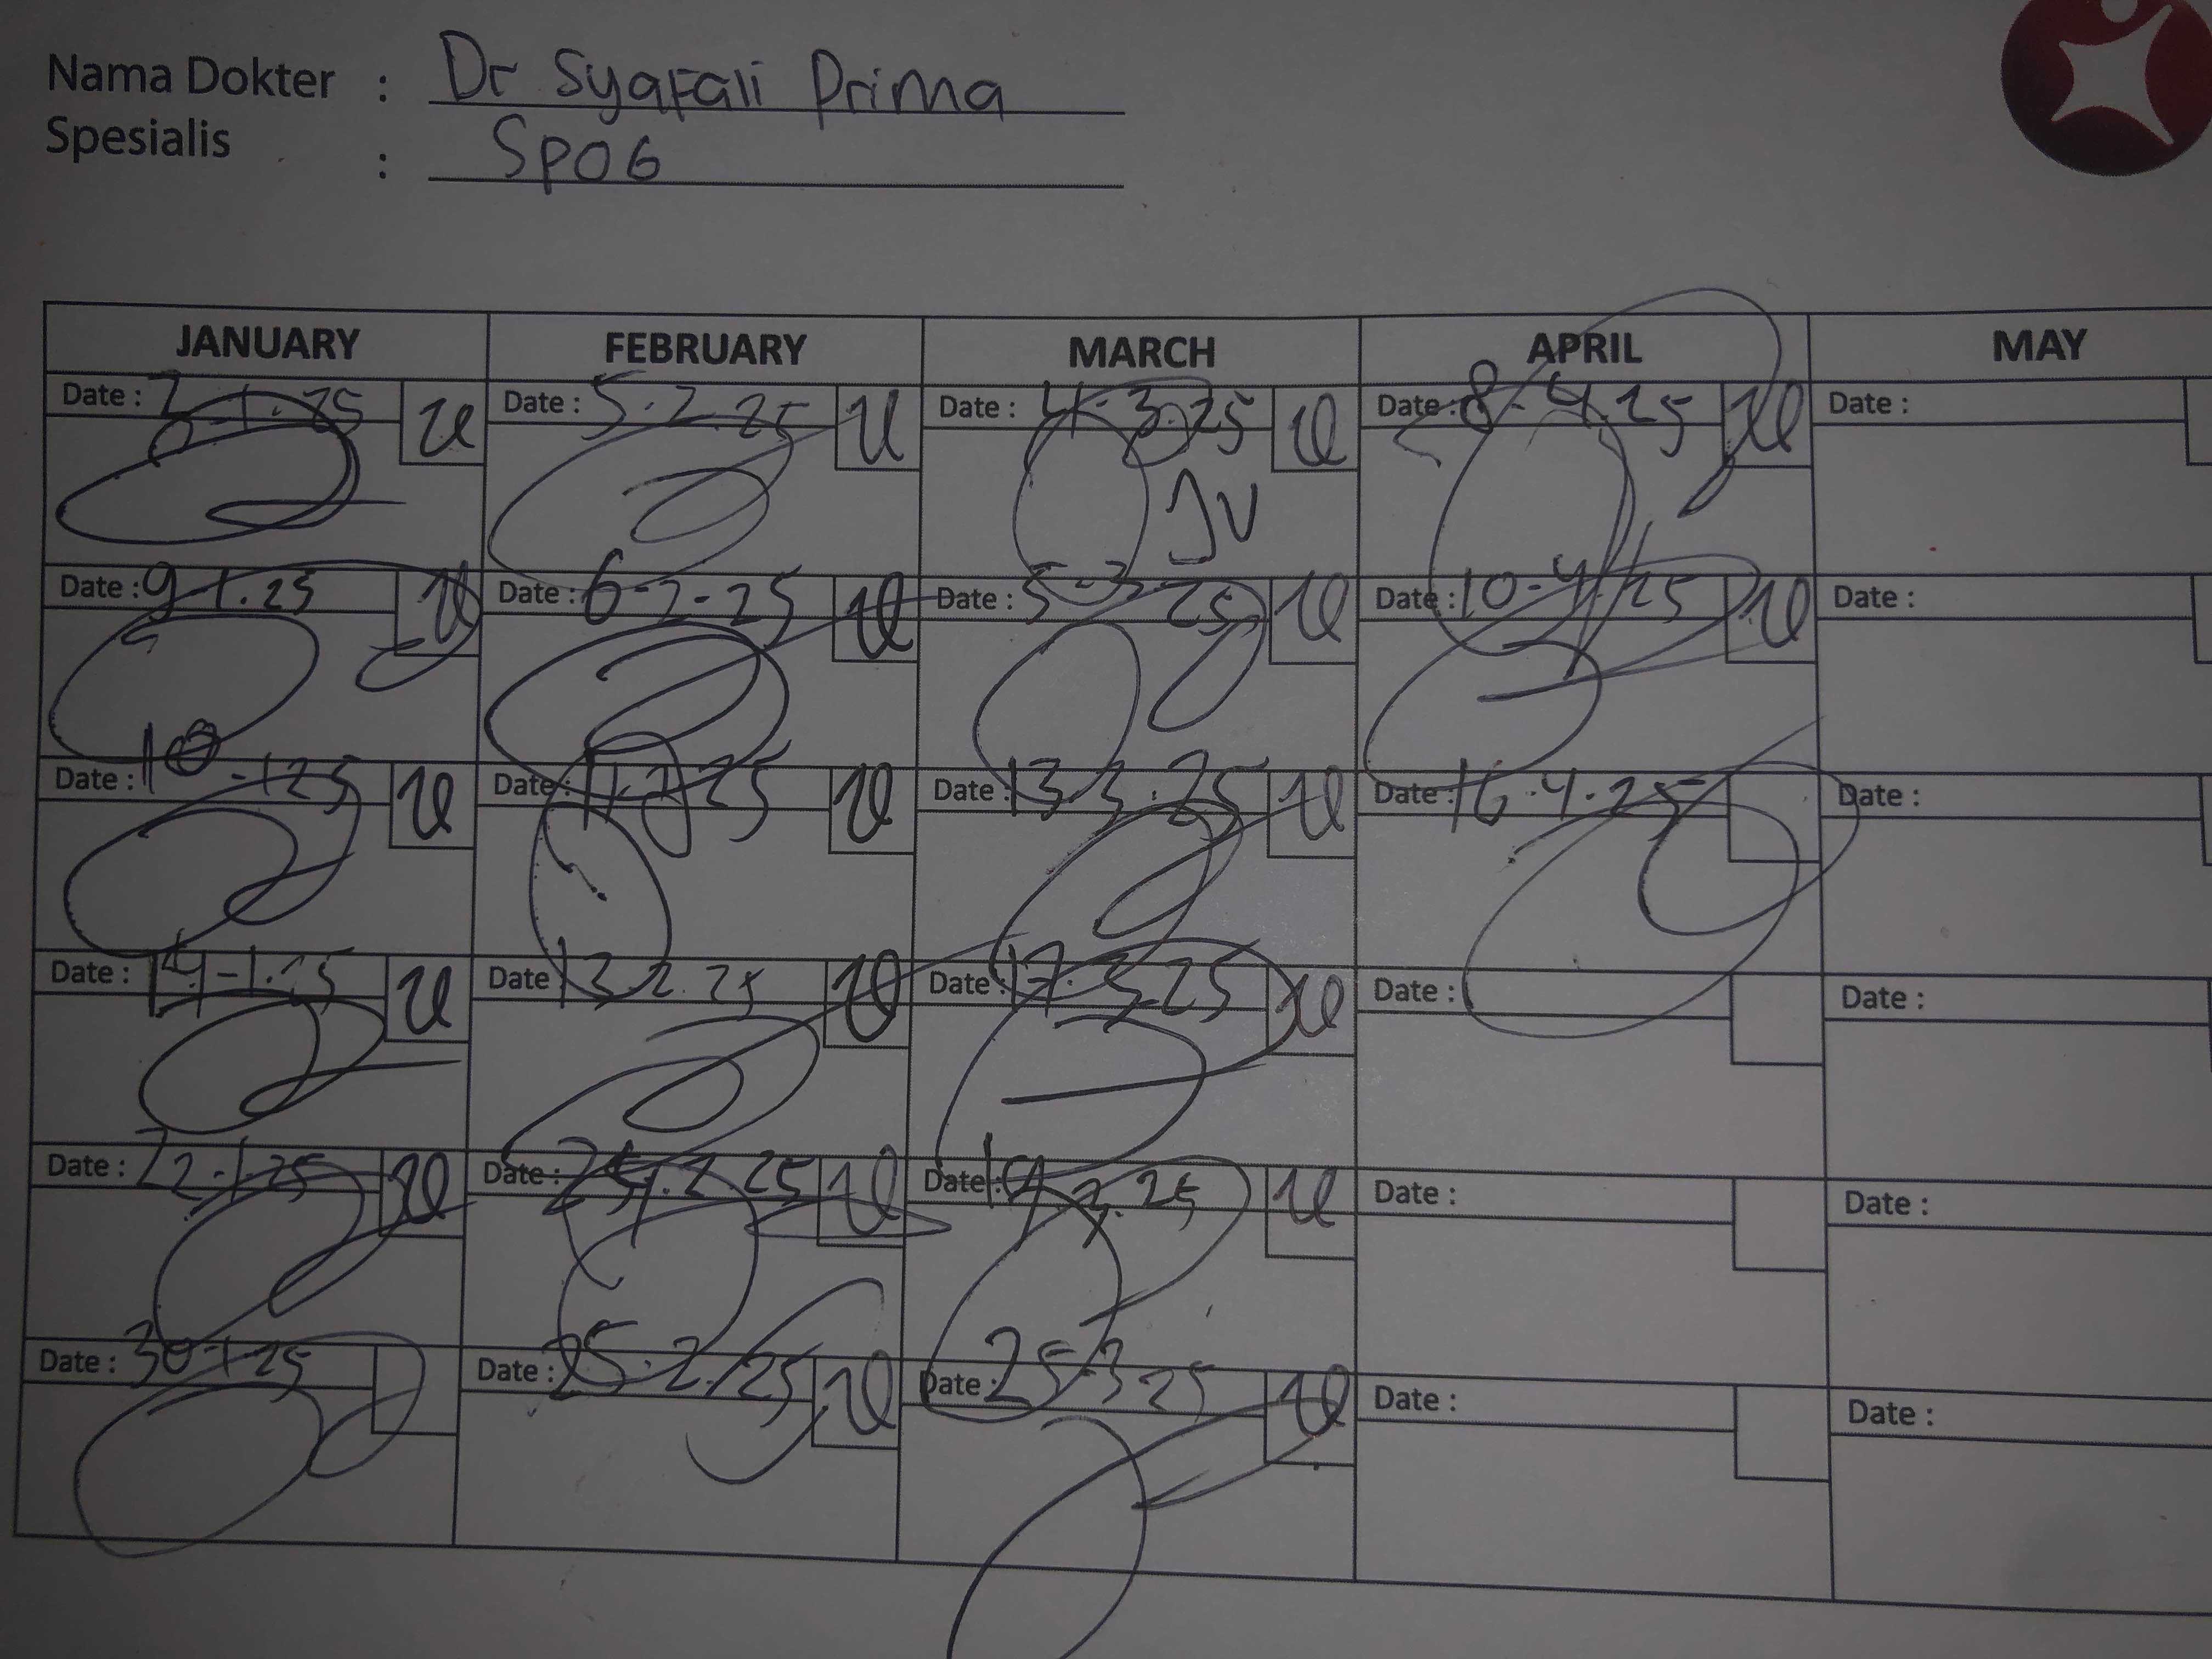 Nama Dokter : Dr Syafali Prima
Spesialis : SPOG
JANUARY FEBRUARY MARCH APRIL MAY
Date : 7-1.25 Date : 5.2.25 Date : 4-3.25 Date : 8-4.25 Date :
JV
Date : 9-1.25 Date : 6-2-25 Date : 5-3-25 Date : 10-4-25 Date :
Date : -1 25 Date : 11-2-25 Date : 13 3.25 Date : 16.4.25 Date :
Date : 14-1.25 Date 13 2.25 Date : 17.3.25 Date : Date :
Date : 22-1-25 Date : 24.2 25 Date : 19.3.25 Date : Date :
Date : 30-1-25 Date : 25.2.25 Date : 25-3 25 Date : Date :